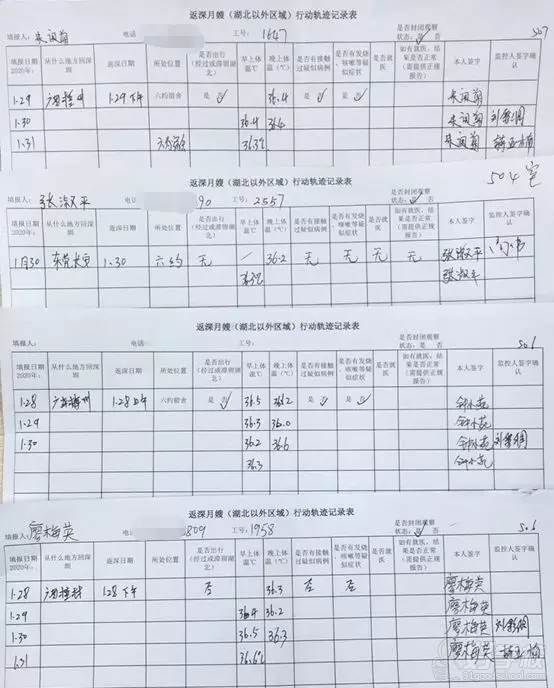 返深月嫂（湖北以外区域）行动轨迹记录表
填报人： 电话 工号：1647 是否封闭观察状态：是 否 507
填报日期 2020年： 从什么地方回深圳 返深日期 所处位置 是否出行（经过或滞留湖北） 早上体温℃ 晚上体温（℃） 是否有接触过疑似病例 是否有发烧、咳嗽等疑似症状 是否就医 如有就医，结果是否正常（需提供正规报告） 本人签字 监控人签字确认
1.29 1.29下午 六约宿舍 是 否 36.4 是 否 是 否
1.30 36.4 36.6
1.31 六约宿舍 36.3℃
返深月嫂（湖北以外区域）行动轨迹记录表
张淑平 电话 90 工号：2557 是否封闭观察状态：是 否 504室
填报日期 2020年： 从什么地方回深圳 返深日期 所处位置 是否出行（经过或滞留湖北） 早上体温℃ 晚上体温（℃） 是否有接触过疑似病例 是否有发烧、咳嗽等疑似症状 是否就医 如有就医，结果是否正常（需提供正规报告） 本人签字 监控人签字确认
1月30 东莞长安 1.30 六约 无 — 36.2 无 无 无 无 张淑平
张淑平
返深月嫂（湖北以外区域）行动轨迹记录表
填报人： 电话： 工号： 是否封闭观察状态：是 否 506
填报日期 2020年： 从什么地方回深圳 返深日期 所处位置 是否出行（经过或滞留湖北） 早上体温℃ 晚上体温（℃） 是否有接触过疑似病例 是否有发烧、咳嗽等疑似症状 是否就医 如有就医，结果是否正常（需提供正规报告） 本人签字 监控人签字确认
1.28 1.28下午 六约宿舍 是 否 36.5 36.2 是 否 是 否 钟小苑
1.29 36.3 36.0 钟小苑
1.30 36.2 36.6 钟小苑
36.3 钟小苑
返深月嫂（湖北以外区域）行动轨迹记录表
廖梅英 电 809 工号：1958 是否封闭观察状态：是 否 506
填报日期 2020年： 从什么地方回深圳 返深日期 所处位置 是否出行（经过或滞留湖北） 早上体温℃ 晚上体温（℃） 是否有接触过疑似病例 是否有发烧、咳嗽等疑似症状 是否就医 如有就医，结果是否正常（需提供正规报告） 本人签字 监控人签字确认
1.28 1.28下午 否 36.3 否 否 廖梅英
1.29 36.4 36.2 廖梅英
1.30 36.5 36.3 廖梅英
1.31 36.6℃ 廖梅英